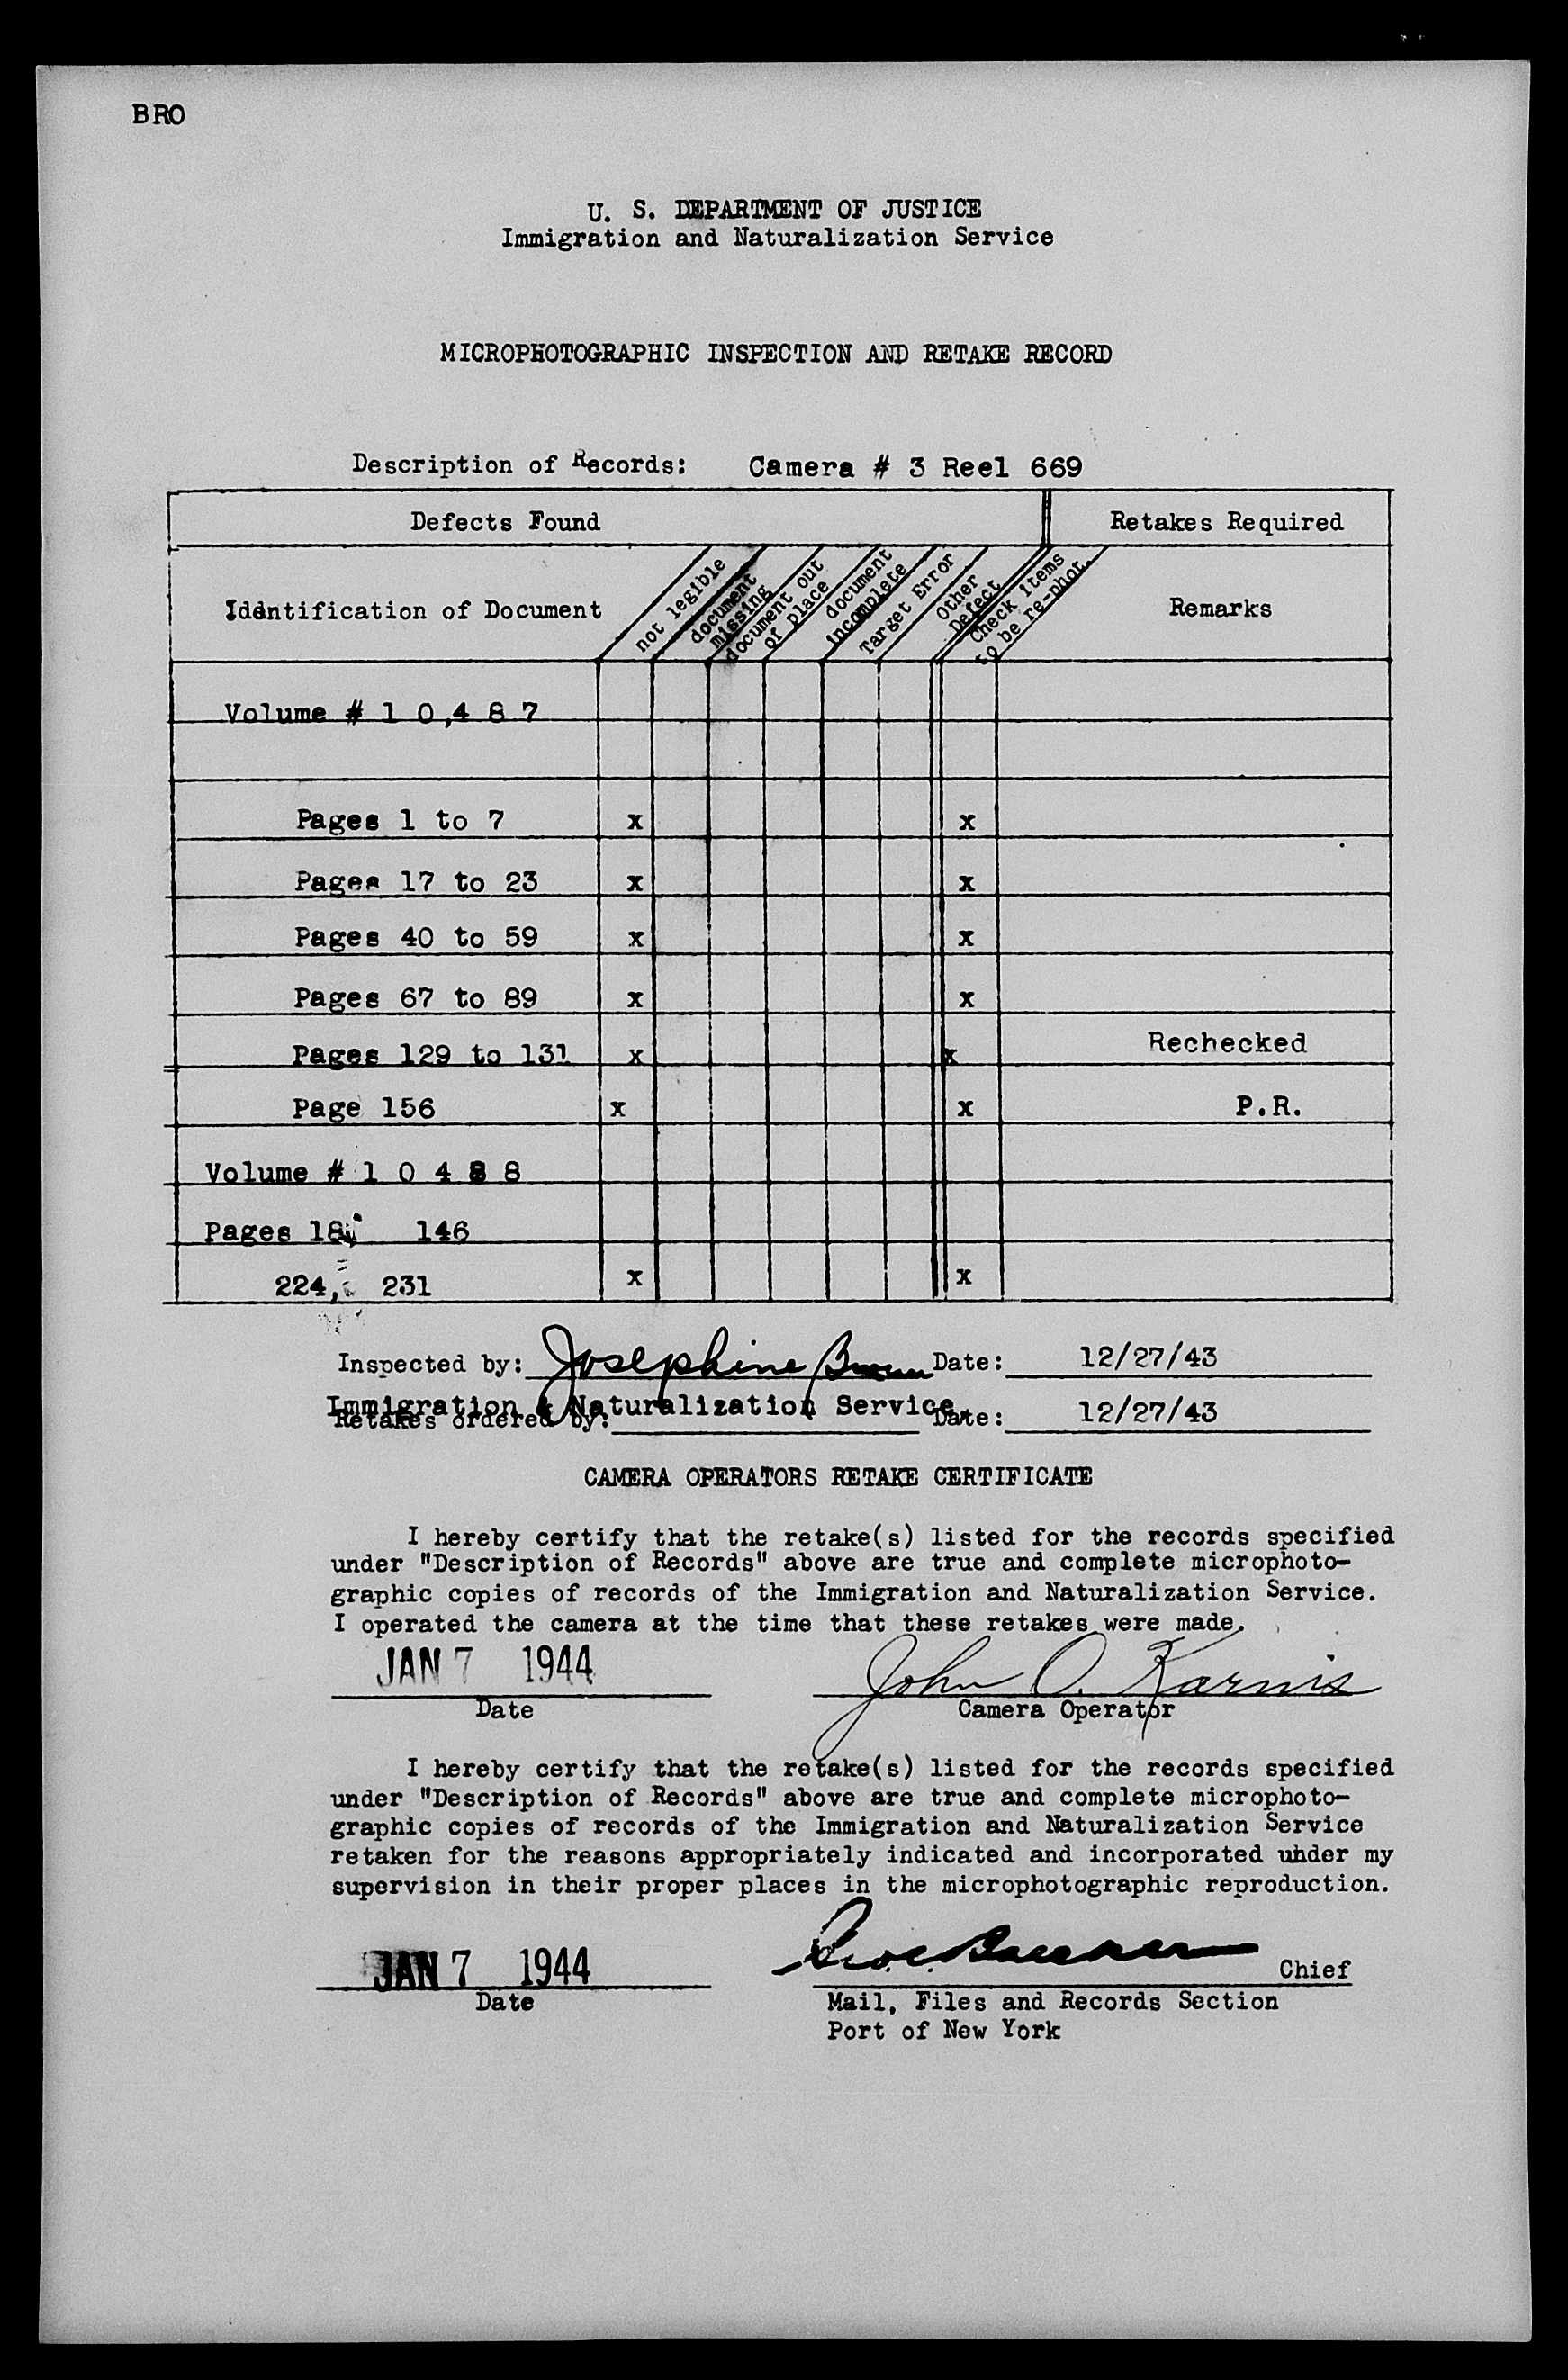 BRO
U. S. DEPARTMENT OF JUSTICE
Immigration and Naturalization Service
MICROPHOTOGRAPHIC INSPECTION AND RETAKE RECORD
Description of Records: Camera # 3 Reel 669
Defects Found Retakes Required
Iddntification of Document
not legible
document missing
document out of place
document incomplete
Target Error
Other Defect
Check items to be re-phot.
Remarks
Volume # 1 0,4 8 7
Pages 1 to 7 x x
Pages 17 to 23 x x
Pages 40 to 59 x x
Pages 67 to 89 x x
Pages 129 to 131 x x Rechecked
Page 156 x x P.R.
Volume # 1 0 4 8 8
Pages 18 146
224, 231 x x
Inspected by: Josephine Date: 12/27/43
Immigration & Naturalization Service,
Retakes ordered by: Date: 12/27/43
CAMERA OPERATORS RETAKE CERTIFICATE
I hereby certify that the retake(s) listed for the records specified
under "Description of Records" above are true and complete microphoto-
graphic copies of records of the Immigration and Naturalization Service.
I operated the camera at the time that these retakes were made.
JAN 7 1944 John O. Karnis
Date Camera Operator
I hereby certify that the retake(s) listed for the records specified
under "Description of Records" above are true and complete microphoto-
graphic copies of records of the Immigration and Naturalization Service
retaken for the reasons appropriately indicated and incorporated uhder my
supervision in their proper places in the microphotographic reproduction.
JAN 7 1944 Chief
Date Mail, Files and Records Section
Port of New York